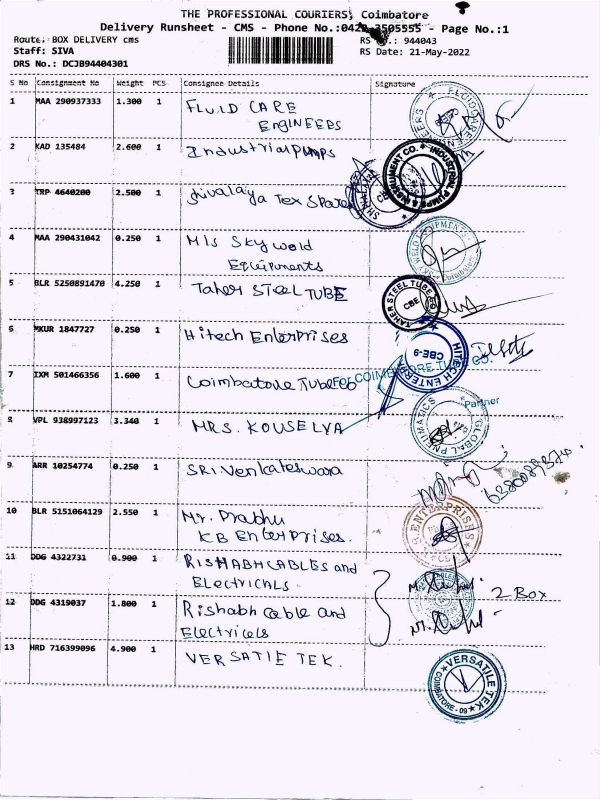 THE PROFESSIONAL COURIERS, Coimbatore
Delivery Runsheet - CMS - Phone No.:0422-3505555 - Page No.:1
Route: BOX DELIVERY cms
RS No.: 944043
Staff: SIVA
RS Date: 21-May-2022
DRS No.: DCJB94404301
S No Consignment No Weight PCS Consignee Details Signature
1 MAA 290937333 1.300 1 FLUID CARE
ENGINEERS
2 KAD 135484 2.600 1 Industrial pumps
3 TRP 4640200 2.500 1 Shivalaya Tex Spares
4 MAA 290431042 0.250 1 M/s Sky weld
Equipments
5 BLR 5250891470 4.250 1 Taher STEEL TUBE
6 MKUR 1847727 0.250 1 Hitech Enterprises
7 IXM 501466356 1.600 1 Coimbatore Tube Co
COIMBATORE TUBE CO.
Partner
8 VPL 938997123 3.340 1 MRS. KOUSELYA
9 ARR 10254774 0.250 1 SRI Venkateswara
10 BLR 5151064129 2.550 1 Mr. Prabhu
KB Enterprises.
11 DDG 4322731 0.900 1 RISHABH CABLES and
ELectricALS.
2 Box
12 DDG 4319037 1.800 1 Rishabh Cable and
Electricals
13 HRD 716399096 4.900 1 VERSATIE TEK.
INDUSTRIAL PUMPS & INSTRUMENT CO.
TAHER STEEL TUBE
CBE
HITECH ENTERPRISES
CBE-9
GLOBAL PNEUMATICS
ENTERPRISES
VERSATILE TEK
COIMBATORE - 09